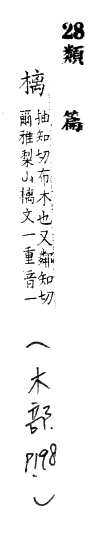 28
類篇
樆 抽知切布木也又鄰知切
爾雅梨山樆文一重音一
(木部 P198.)